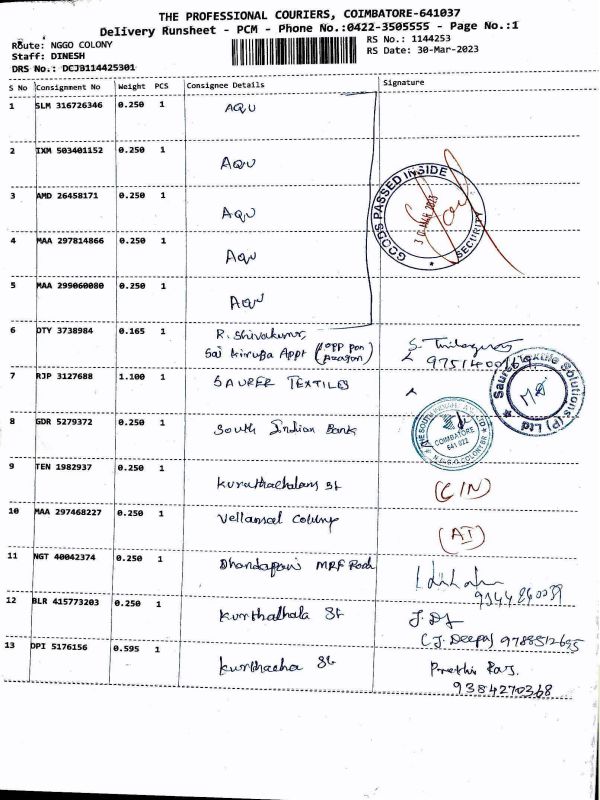 THE PROFESSIONAL COURIERS, COIMBATORE-641037
Delivery Runsheet - PCM - Phone No.:0422-3505555 - Page No.:1
Route: NGGO COLONY
Staff: DINESH
DRS No.: DCJB114425301
RS No.: 1144253
RS Date: 30-Mar-2023
S No Consignment No Weight PCS Consignee Details Signature
1 SLM 316726346 0.250 1 AQU
2 IXM 503401152 0.250 1 AQU
3 AMD 26458171 0.250 1 AQU
4 MAA 297814866 0.250 1 AQU
5 MAA 299060080 0.250 1 AQU
GOODS PASSED INSIDE
30 MAR 2023
SECURITY
6 DTY 3738984 0.165 1 R. Shivakumar,
Sai Kirupa Appt (opp pon
7 RJP 3127688 1.100 1 SAURER TEXTILES
Saurer Textile Solutions (P) Ltd
8 GDR 5279372 0.250 1 South Indian Bank
COIMBATORE
641 022
9 TEN 1982937 0.250 1 St (CIN)
10 MAA 297468227 0.250 1 Colony (AI)
11 NGT 40042374 0.250 1 Dhandapani MRF Rod
12 BLR 415773203 0.250 1 Kurthalhala St
C.J. Deepa) 9788512695
13 DPI 5176156 0.595 1 Kurthacha St
Prethi Raj.
9384270368